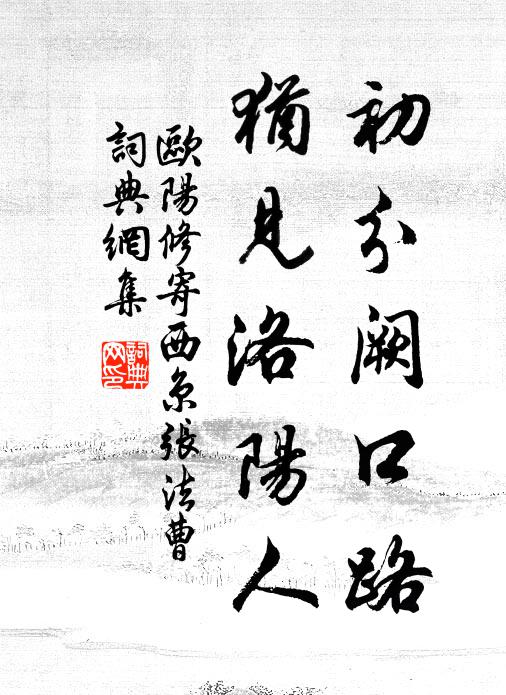 初分闕口路
猶見洛陽人
歐陽修寄西京張法曹
詞典網集
詞典
网印